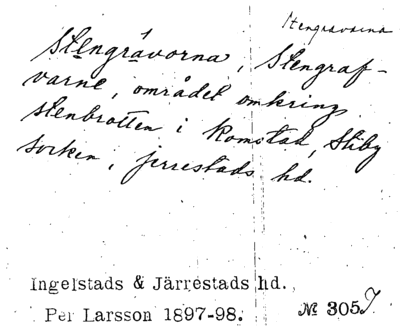 Stengravarna
Stengrávorna, Stengraf-
varne, området omkring
stenbrotten i Komstad, Stiby
socken, jerrestads hd.
Ingelstads & Järrestads hd.
Per Larsson 1897-98. № 305